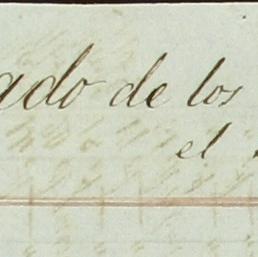 ado de los
el